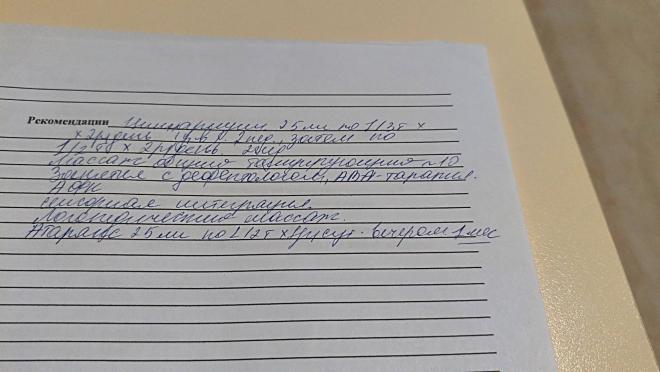 Рекомендации Циннаризин 25 мг по 1/2 т ×
× 2 р/день 1 нед., затем по
1/2 т × 2 р/день
Массаж общий тонизирующий №10
Занятия с дефектологом, АВА-терапия.
АФК
Сенсорная интеграция.
Логопедический массаж.
Атаракс 25 мг по 1/2 т × 1 р/сут. вечером 1 мес